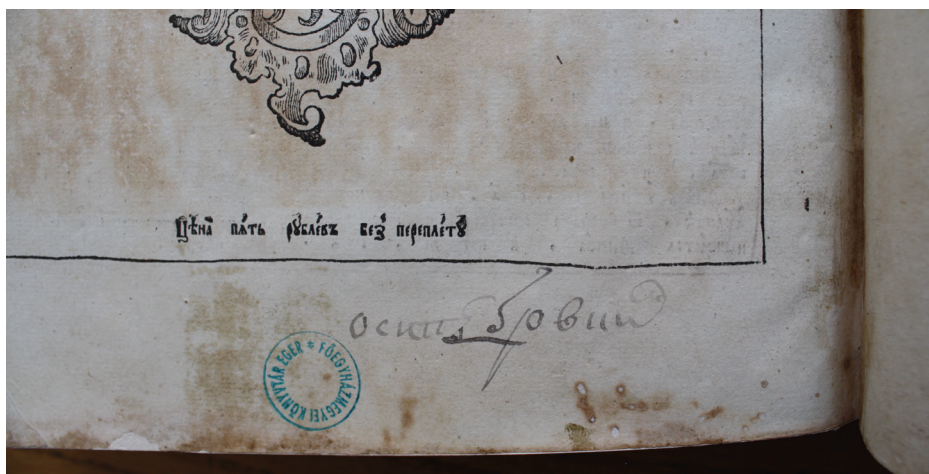 Цѣна̀ пѧ́ть рꙋблє́въ без̾ переплє́тꙋ
осипъ
FŐEGYHÁZMEGYEI KÖNYVTÁR EGER *